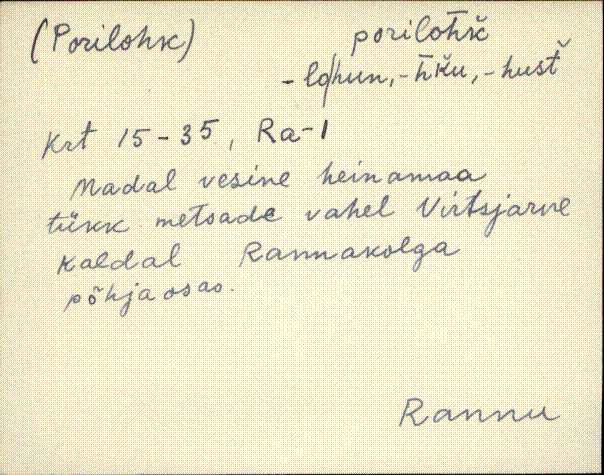 (Porilohk) poriloh̄k̆
-lo|hun, -h̄k̆u, -hust̆
Krt 15-35, Ra-1
Madal vesine heinamaa
tükk metsade vahel Virtsjärve
kaldal Rannakolga
põhjaosas.
Rannu